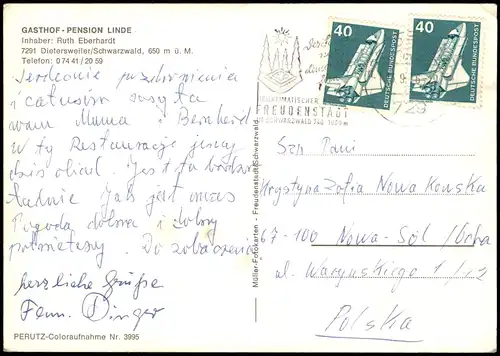 GASTHOF - PENSION LINDE
Inhaber: Ruth Eberhardt
7291 Dietersweiler/Schwarzwald, 650 m ü. M.
Telefon: 0 74 41 / 20 59
Serdeczne pozdrowienia
i całusów
wam Mama i Bernhard
w tej Restauracji jemy
dziś obiad. Jest tu bardzo
ładnie
Pogoda dobra i dobry
Do zobaczenia
herzliche Grüße
Fam. Dinger
PERUTZ-Coloraufnahme Nr. 3995
Müller-Fotokarten - Freudenstadt/Schwarzwald
40
DEUTSCHE BUNDESPOST
40
DEUTSCHE BUNDESPOST
FREUDENSTADT
SCHWARZWALD 740
729
Szn Pani
Krystyna Zofia Nowakowska
67-100 Nowa-Sól /Odra
ul. Waryńskiego 1/12
Polska